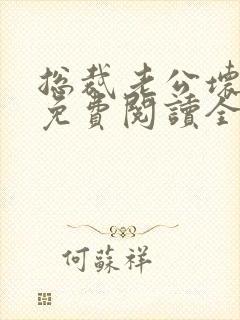 總裁老公壞
免費閱讀全
何蘇祥